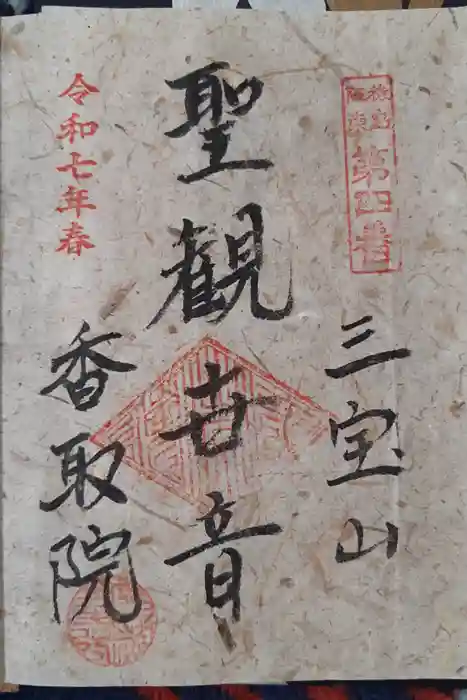 第四番
三宝山
聖観世音
令和七年春
香取院